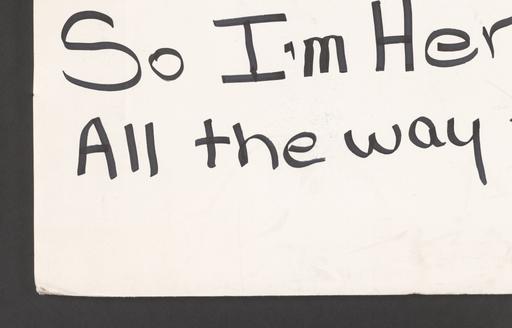 So I'm Her
All the way